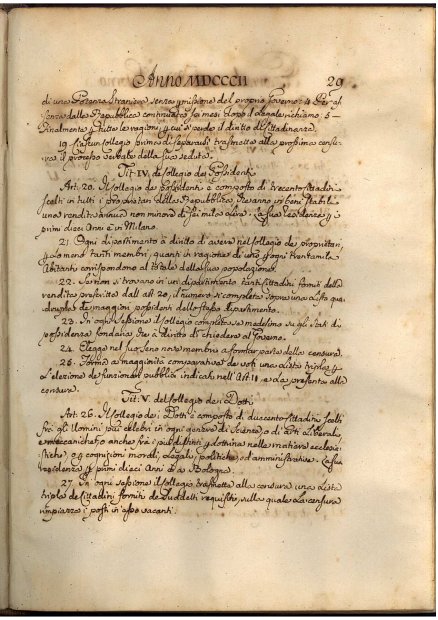 Anno MDCCCII 29
di una Potenza straniera senza permissione del proprio Governo: 4 Per assenza dalla Repubblica continuata sei mesi dopo il legale richiamo: 5 –
Finalmente per tutte le ragioni, per cui si perde il diritto di Cittadinanza.
19. Ciascun Collegio prima di separarsi trasmette alla prossima Censura il processo verbale della sua seduta.
Tit. IV. del Collegio dei Possidenti
Art. 20. Il Collegio de' possidenti è composto di trecento Cittadini
scelti in tutti i proprietari della Repubblica, che hanno in beni stabili
una rendita annua non minore di sei mila lire. La sua residenza per i
primi dieci Anni è in Milano.
21. Ogni dipartimento à diritto di avere nel Collegio de' proprietari
per lo meno tanti membri, quanti in ragione di uno per ogni trentamila
Abitanti corrispondono al totale della sua popolazione.
22. Se non si trovano in un dipartimento tanti Cittadini forniti della
rendita prescritta dall'art. 20, il numero si completa sopra una lista quadrupla de' maggiori possidenti dello stesso dipartimento.
23. In ogni sessione il Collegio completa se medesimo su gli stati di
possidenza fondiaria, che à diritto di chiedere al Governo.
24. Elegge nel suo seno nove membri a formar parte della censura.
25. Forma a maggiorità comparativa de' voti una lista tripla per
l'elezione de' funzionari pubblici indicati nell'Art. 11 e la presenta alla
censura.
Tit. V. del Collegio dei Dotti
Art. 26. Il Collegio dei Dotti è composto di duecento Cittadini scelti
fra gli Uomini più celebri in ogni genere di Scienze, o di arti Liberali,
e meccaniche, o anche fra i più distinti per dottrina nelle materie ecclesiastiche, o per cognizioni morali, legali, politiche, ed amministrative. La sua
residenza per i primi dieci Anni è a Bologna.
27. In ogni sessione il Collegio trasmette alla censura una lista
tripla de' Cittadini forniti de' suddetti requisiti, sulla quale la Censura
rimpiazza i posti in esso vacanti.